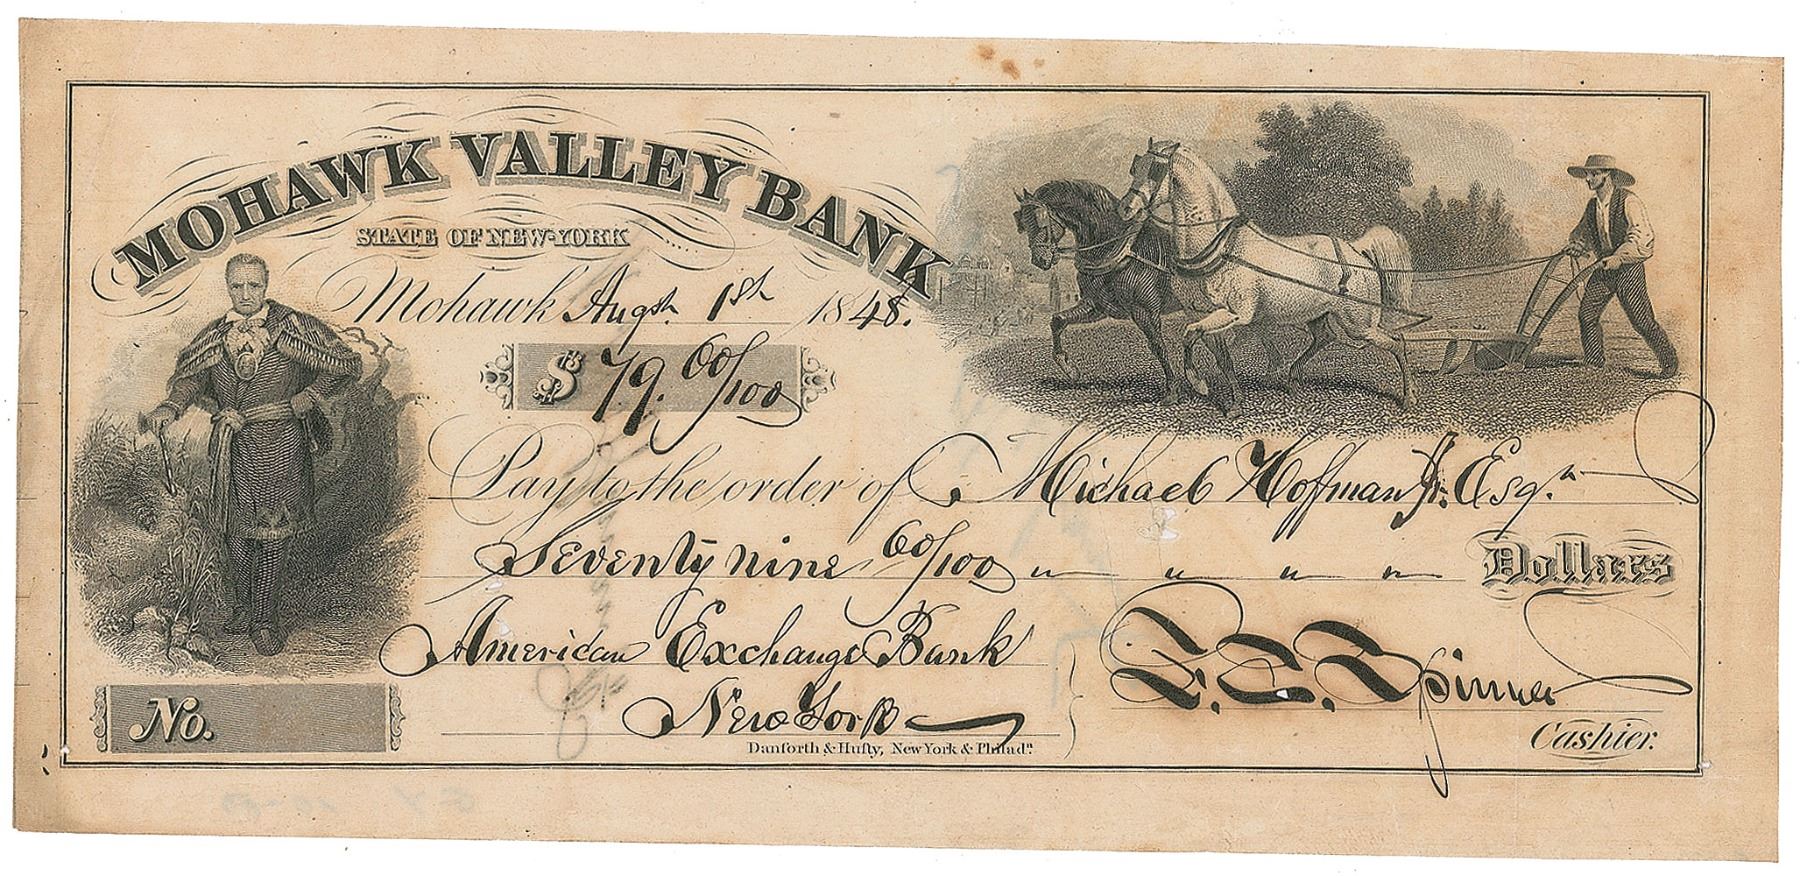 MOHAWK VALLEY BANK
STATE OF NEW-YORK
Mohawk Augst. 1st 1848.
$ 79. 60/100
Pay to the order of Michael Hoffman Jr. Esqr.
Seventy nine 60/100 " " " " Dollars
American Exchange Bank
New York
F. E. Spinner
Cashier.
No.
Danforth & Hufty, New York & Philada.